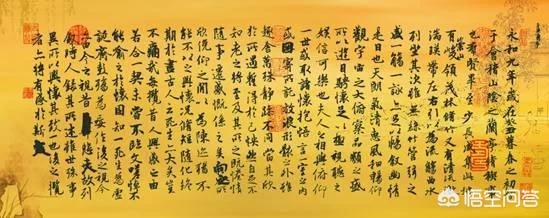 永和九年歲在癸丑暮春之初會
于會稽山陰之蘭亭脩稧事
也群賢畢至少長咸集此地
有崇山峻領茂林脩竹又有清流激
湍暎帶左右引以為流觴曲水
列坐其次雖無絲竹管弦之
盛一觴一詠亦足以暢敘幽情
是日也天朗氣清惠風和暢仰
觀宇宙之大俯察品類之盛
所以遊目騁懷足以極視聽之
娛信可樂也夫人之相與俯仰
一世或取諸懷抱悟言一室之內
或因寄所託放浪形骸之外雖
趣舍萬殊靜躁不同當其欣
於所遇暫得於己快然自足不
知老之將至及其所之既惓情
隨事遷感慨係之矣向之所
欣俛仰之間以為陳迹猶不
能不以之興懷況脩短隨化終
期於盡古人云死生亦大矣豈
不痛哉每攬昔人興感之由
若合一契未嘗不臨文嗟悼不
能喻之於懷固知一死生為虛
誕齊彭殤為妄作後之視今
亦由今之視昔悲夫故列
敘時人錄其所述雖世殊事
異所以興懷其致一也後之攬
者亦將有感於斯文
悟空问答